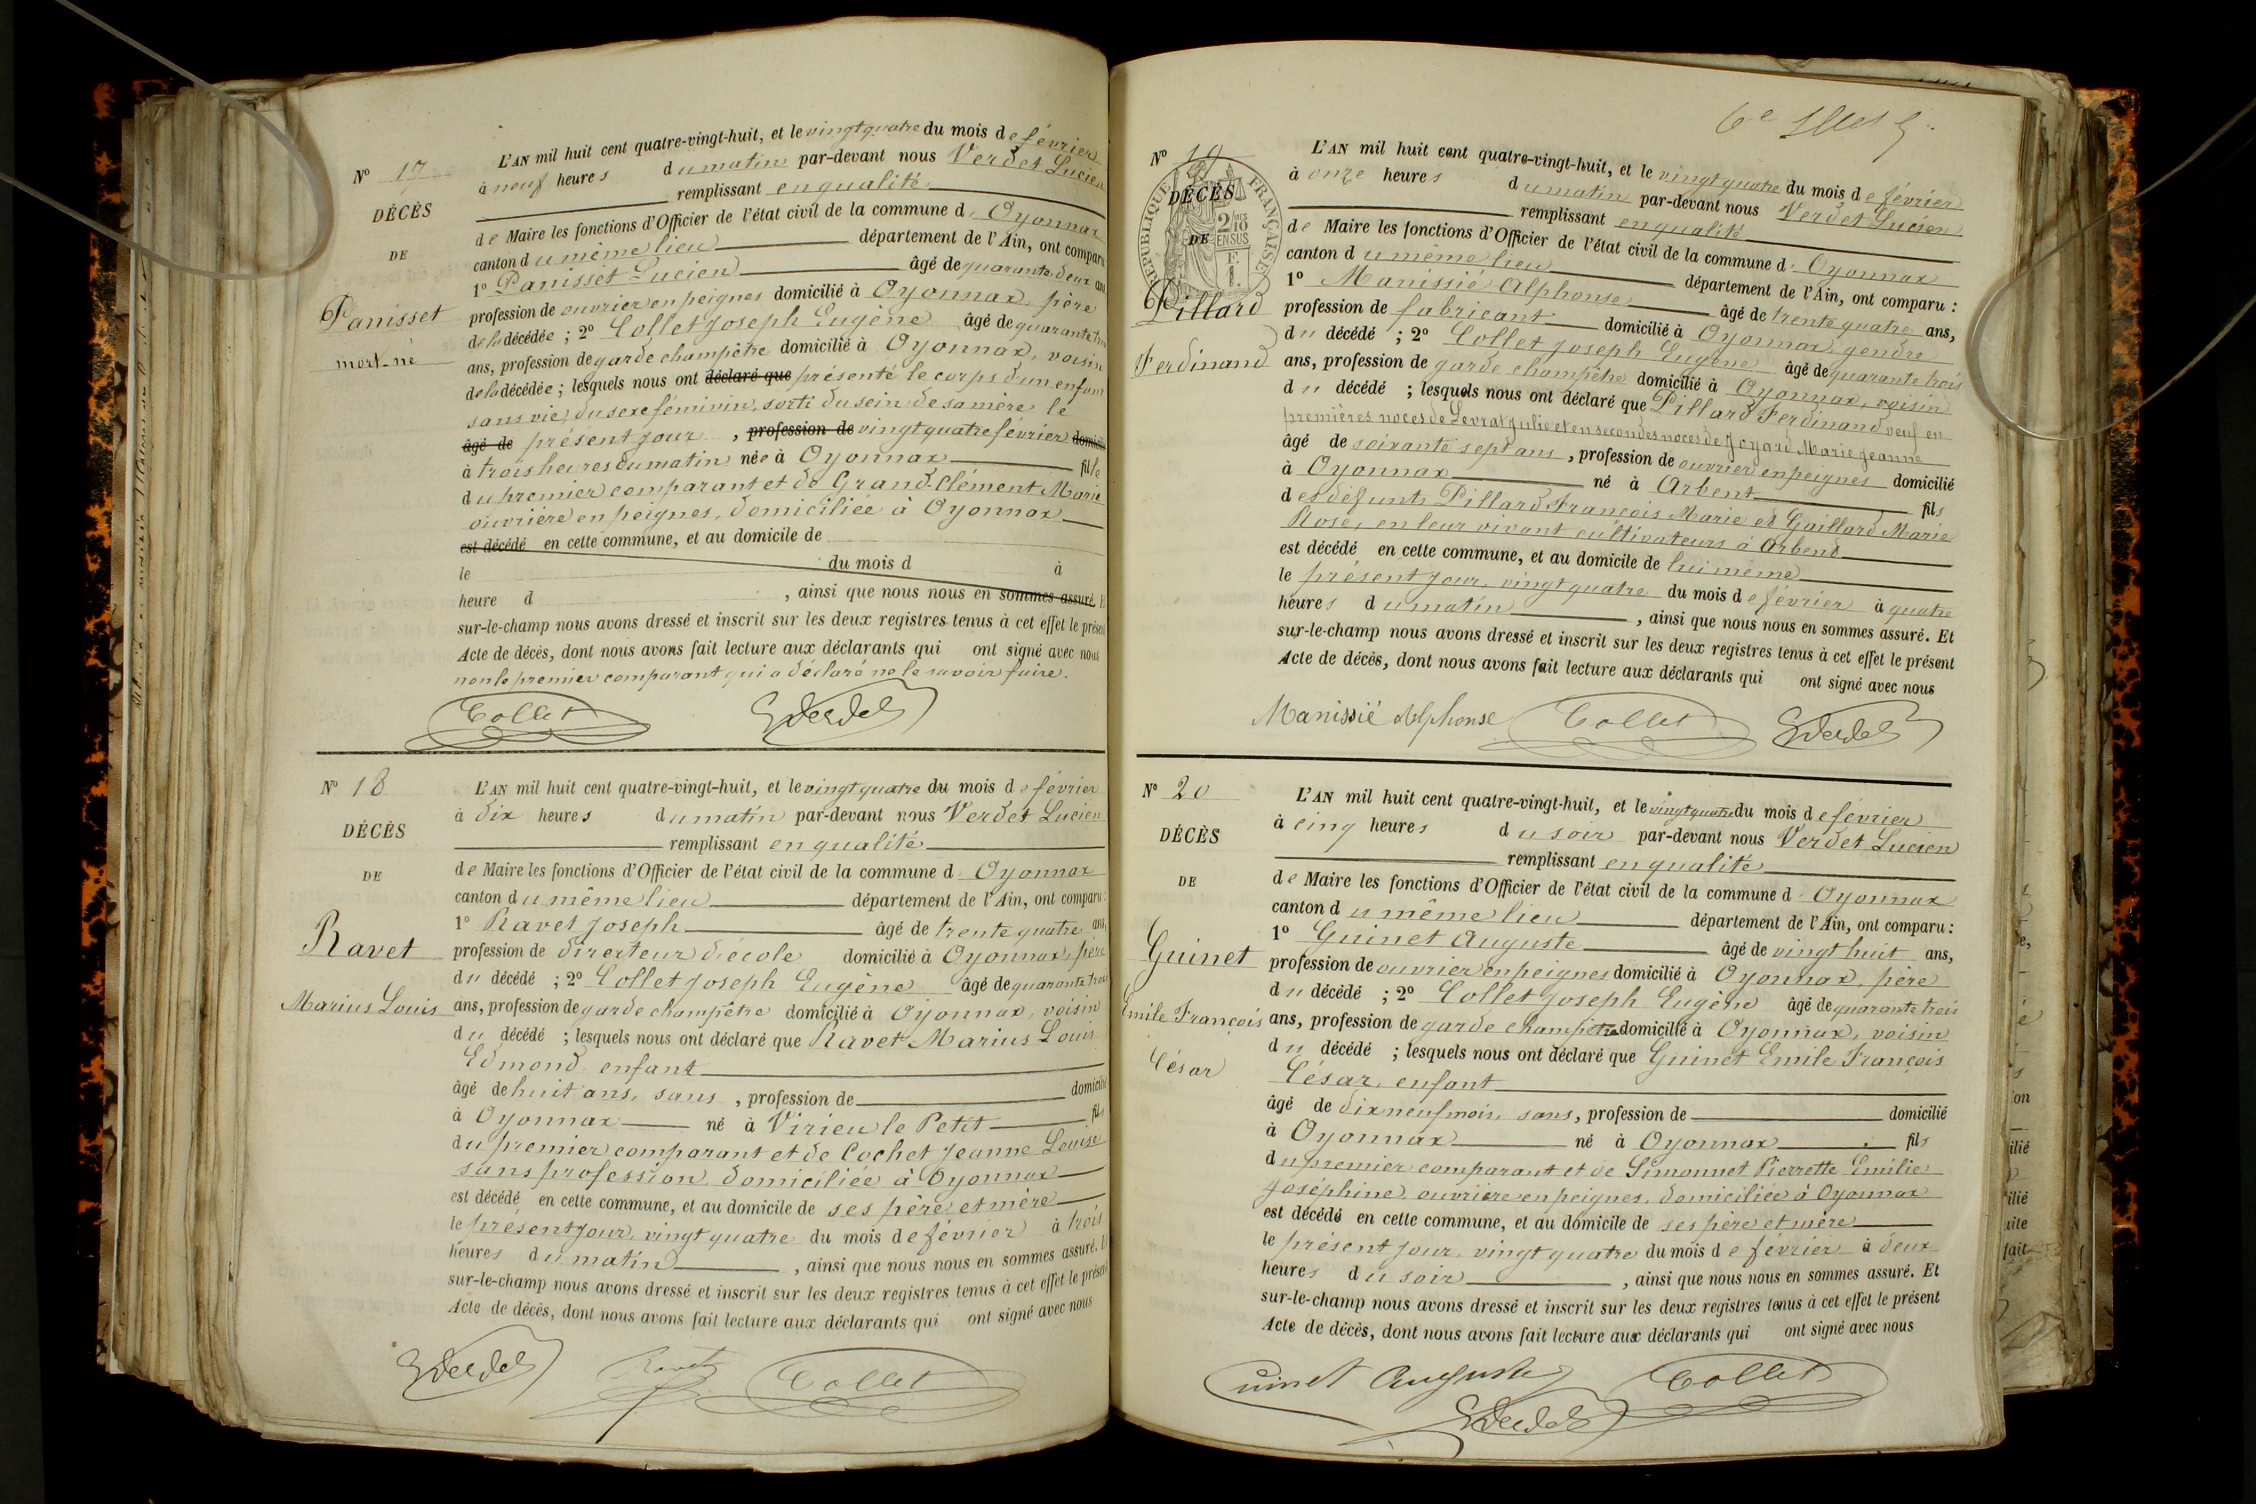 Nº 17
DÉCÈS
DE
Panisset
mort-né
L'AN mil huit cent quatre-vingt-huit, et le vingt quatre du mois de février
à neuf heures du matin par-devant nous Verdet Lucien
remplissant en qualité
de Maire les fonctions d'Officier de l'état civil de la commune d. Oyonnax
canton du même lieu département de l'Ain, ont comparu
1º Panisset Lucien âgé de quarante deux ans
profession de ouvrier en peignes domicilié à Oyonnax, père
de la décédée ; 2º Collet Joseph Eugène âgé de quarante trois
ans, profession de garde champêtre domicilié à Oyonnax, voisin
de la décédée ; lesquels nous ont déclaré que présenté le corps d'un enfant
sans vie, du sexe féminin, sorti du sein de sa mère le
âgé de présent jour, profession de vingt quatre février domicilié
à trois heures du matin née à Oyonnax fille
du premier comparant et de Grand-Clément Marie
ouvrière en peignes, domiciliée à Oyonnax
est décédé en cette commune, et au domicile de
le du mois d à
heure d , ainsi que nous nous en sommes assuré. Et
sur-le-champ nous avons dressé et inscrit sur les deux registres tenus à cet effet le présent
Acte de décès, dont nous avons fait lecture aux déclarants qui ont signé avec nous
non le premier comparant qui a déclaré ne le savoir faire.
Collet Verdet
Nº 18
DÉCÈS
DE
Ravet
Marius Louis
L'AN mil huit cent quatre-vingt-huit, et le vingt quatre du mois de février
à dix heures du matin par-devant nous Verdet Lucien
remplissant en qualité
de Maire les fonctions d'Officier de l'état civil de la commune d. Oyonnax
canton du même lieu département de l'Ain, ont comparu :
1º Ravet Joseph âgé de trente quatre ans,
profession de directeur d'école domicilié à Oyonnax, père
du décédé ; 2º Collet Joseph Eugène âgé de quarante trois
ans, profession de garde champêtre domicilié à Oyonnax, voisin
du décédé ; lesquels nous ont déclaré que Ravet Marius Louis
Edmond enfant
âgé de huit ans, sans , profession de domicilié
à Oyonnax né à Virieu le Petit fils
du premier comparant et de Cochet Jeanne Louise
sans profession domiciliée à Oyonnax
est décédé en cette commune, et au domicile de ses père et mère
le présent jour, vingt quatre du mois de février à trois
heures du matin , ainsi que nous nous en sommes assuré. Et
sur-le-champ nous avons dressé et inscrit sur les deux registres tenus à cet effet le présent
Acte de décès, dont nous avons fait lecture aux déclarants qui ont signé avec nous
Verdet Ravet Collet
6e
Nº 19
DÉCÈS
DE
RÉPUBLIQUE FRANÇAISE
2/10 EN SUS
Pillard
Ferdinand
L'AN mil huit cent quatre-vingt-huit, et le vingt quatre du mois de février
à onze heures du matin par-devant nous Verdet Lucien
remplissant en qualité
de Maire les fonctions d'Officier de l'état civil de la commune d. Oyonnax
canton du même lieu département de l'Ain, ont comparu :
1º Manissié Alphonse âgé de trente quatre ans,
profession de fabricant domicilié à Oyonnax, gendre
du décédé ; 2º Collet Joseph Eugène âgé de quarante trois
ans, profession de garde champêtre domicilié à Oyonnax, voisin
du décédé ; lesquels nous ont déclaré que Pillard Ferdinand veuf en
premières noces de Levrat Julie et en secondes noces de Joyard Marie Jeanne
âgé de soixante sept ans, profession de ouvrier en peignes domicilié
à Oyonnax né à Arbent fils
des défunts Pillard François Marie et Gaillard Marie
Rose, en leur vivant cultivateurs à Arbent
est décédé en cette commune, et au domicile de lui même
le présent jour, vingt quatre du mois de février à quatre
heures du matin , ainsi que nous nous en sommes assuré. Et
sur-le-champ nous avons dressé et inscrit sur les deux registres tenus à cet effet le présent
Acte de décès, dont nous avons fait lecture aux déclarants qui ont signé avec nous
Manissié Alphonse Collet Verdet
Nº 20
DÉCÈS
DE
Guinet
Emile François
César
L'AN mil huit cent quatre-vingt-huit, et le vingt quatre du mois de février
à cinq heures du soir par-devant nous Verdet Lucien
remplissant en qualité
de Maire les fonctions d'Officier de l'état civil de la commune d. Oyonnax
canton du même lieu département de l'Ain, ont comparu :
1º Guinet Auguste âgé de vingt huit ans,
profession de ouvrier en peignes domicilié à Oyonnax, père
du décédé ; 2º Collet Joseph Eugène âgé de quarante trois
ans, profession de garde champêtre domicilié à Oyonnax, voisin
du décédé ; lesquels nous ont déclaré que Guinet Emile François
César, enfant
âgé de dix neuf mois, sans, profession de domicilié
à Oyonnax né à Oyonnax fils
du premier comparant et de Simonnet Pierrette Emilie
Joséphine, ouvrière en peignes, domiciliée à Oyonnax
est décédé en cette commune, et au domicile de ses père et mère
le présent jour, vingt quatre du mois de février à deux
heures du soir , ainsi que nous nous en sommes assuré. Et
sur-le-champ nous avons dressé et inscrit sur les deux registres tenus à cet effet le présent
Acte de décès, dont nous avons fait lecture aux déclarants qui ont signé avec nous
Guinet Auguste Verdet Collet